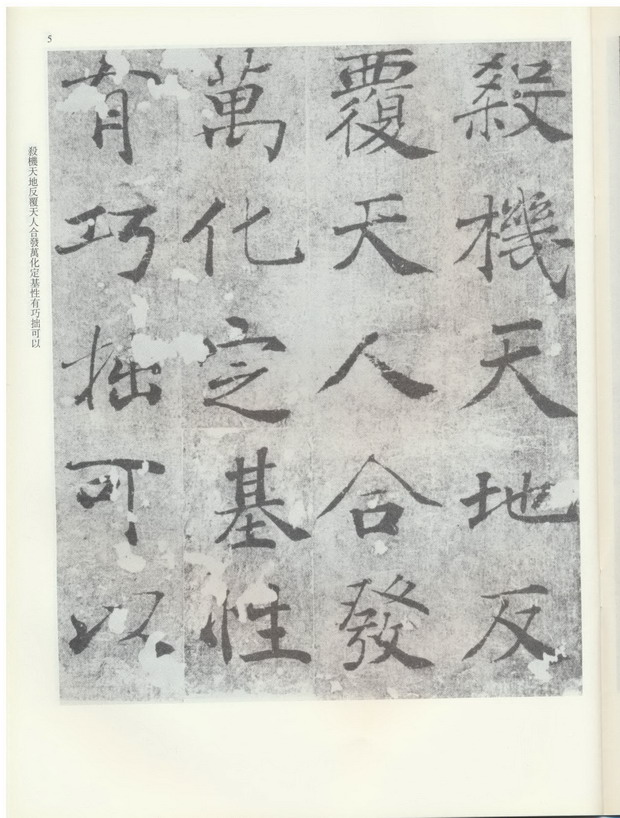 5
殺機天地反
覆天人合發
萬化定基性
有巧拙可以
殺機天地反覆天人合發萬化定基性有巧拙可以